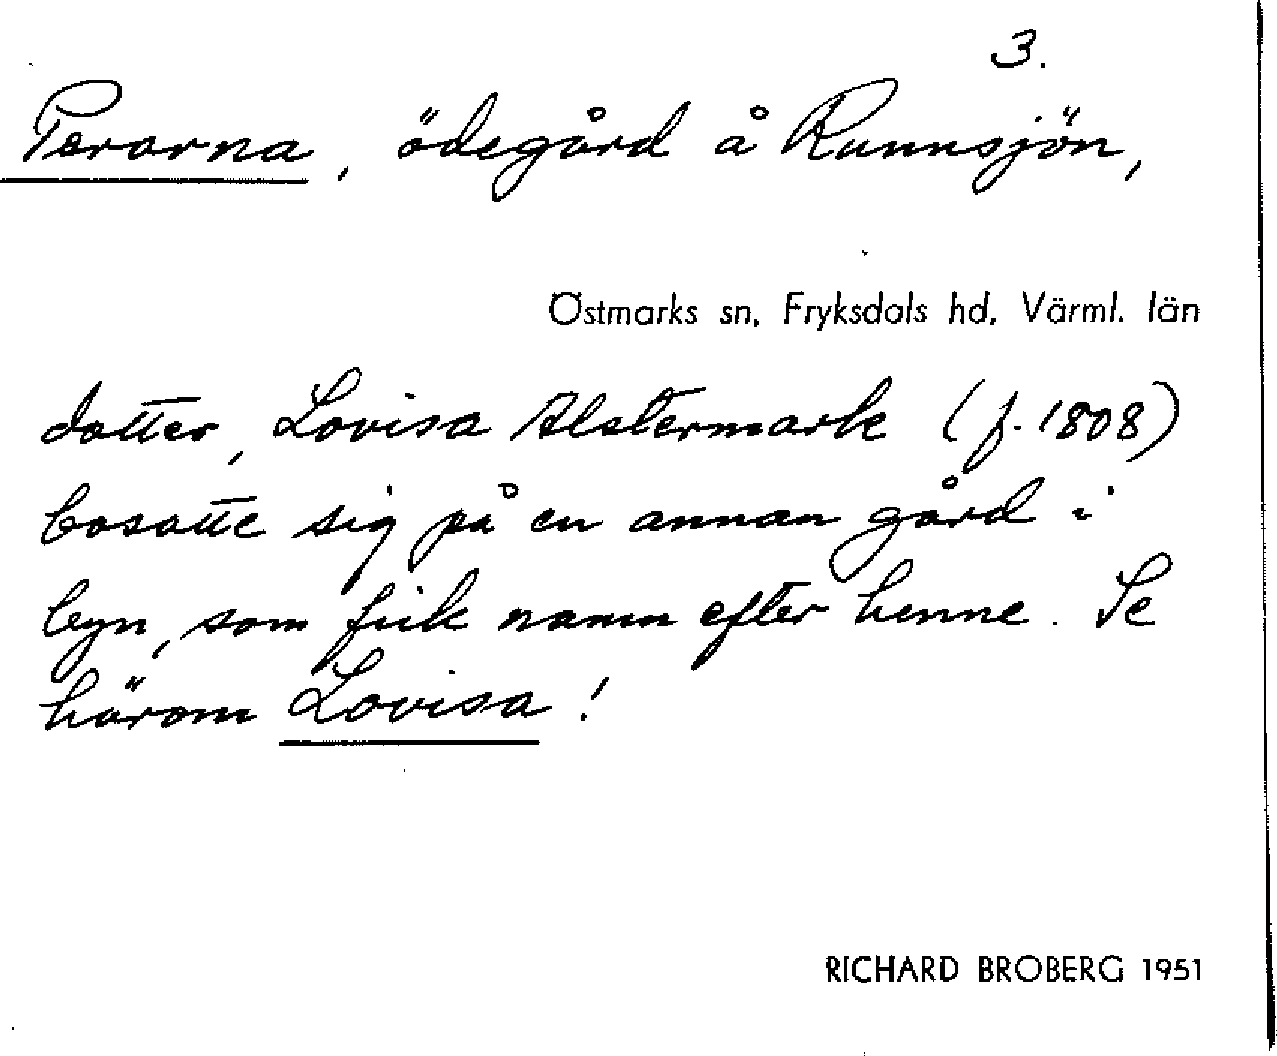 3.
Perarna, ödegård å Runnsjön,
Östmarks sn, Fryksdals hd, Värml. län
dotter, Lovisa Alstermark (f. 1808)
bosatte sig på en annan gård i
byn, som fick namn efter henne. Se
härom Lovisa!
RICHARD BROBERG 1951